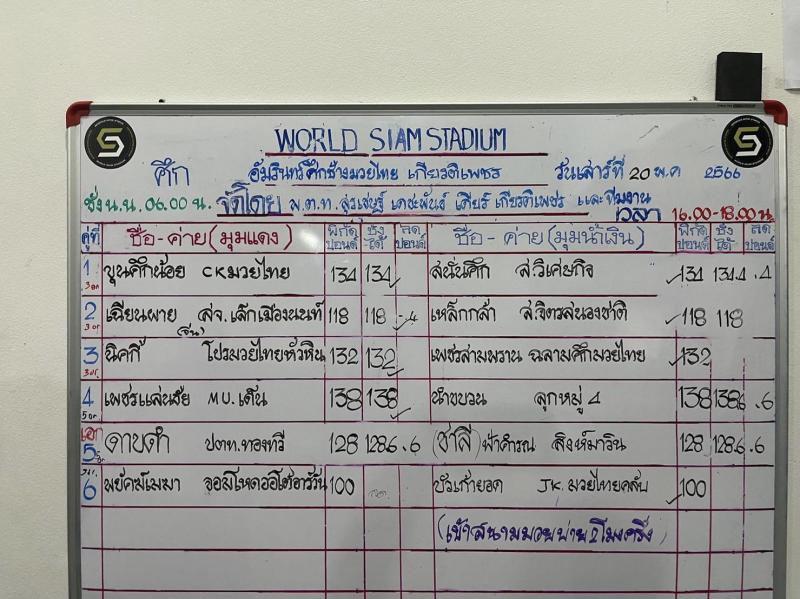 WORLD SIAM STADIUM
ศึก อัมรินทร์ศึกช้างมวยไทย เกียรติเพชร วันเสาร์ที่ 20 พ.ค 2566
ชั่ง น.น. 06.00 น. จัดโดย พ.ต.ท. สุรเชษฐ์ เดชะพันธ์ เสี่ย เกียรติเพชร และทีมงาน
เวลา 16.00-18.00 น.
คู่ที่ ชื่อ-ค่าย (มุมแดง) พิกัดปอนด์ ชั่งได้ ลดปอนด์ ชื่อ-ค่าย (มุมน้ำเงิน) พิกัดปอนด์ ชั่งได้ ลดปอนด์
1 ขุนศึกน้อย CKมวยไทย 134 134 สนั่นศึก ส.วิเศษกิจ 134 134.4 .4
2 เฉียนผาย สจ.เล็กเมืองนนท์ 118 118 -.4 เหล็กกล้า ส.จิตรสนองชาติ 118 118
(จีน)
3 นิคกี้ โปรมวยไทยหัวหิน 132 132 เพชรสามพราน ฉลามศึกมวยไทย 132
4 เพชรแสนชัย MU.เด้น 138 138 นำขบวน ลูกหมู่ 4 138 138.6 .6
เอก 5 ดาบดำ ปตท.ทองทวี 128 128.6 .6 (ชาลี) ฟ้าคำรณ สิงห์มาวิน 128 128.6 .6
6 พยัคฆ์เมมา 100 บัวเก้ายอด JK.มวยไทยคลับ 100
(เข้าสนามมวยบ่าย 2 โมงครึ่ง)